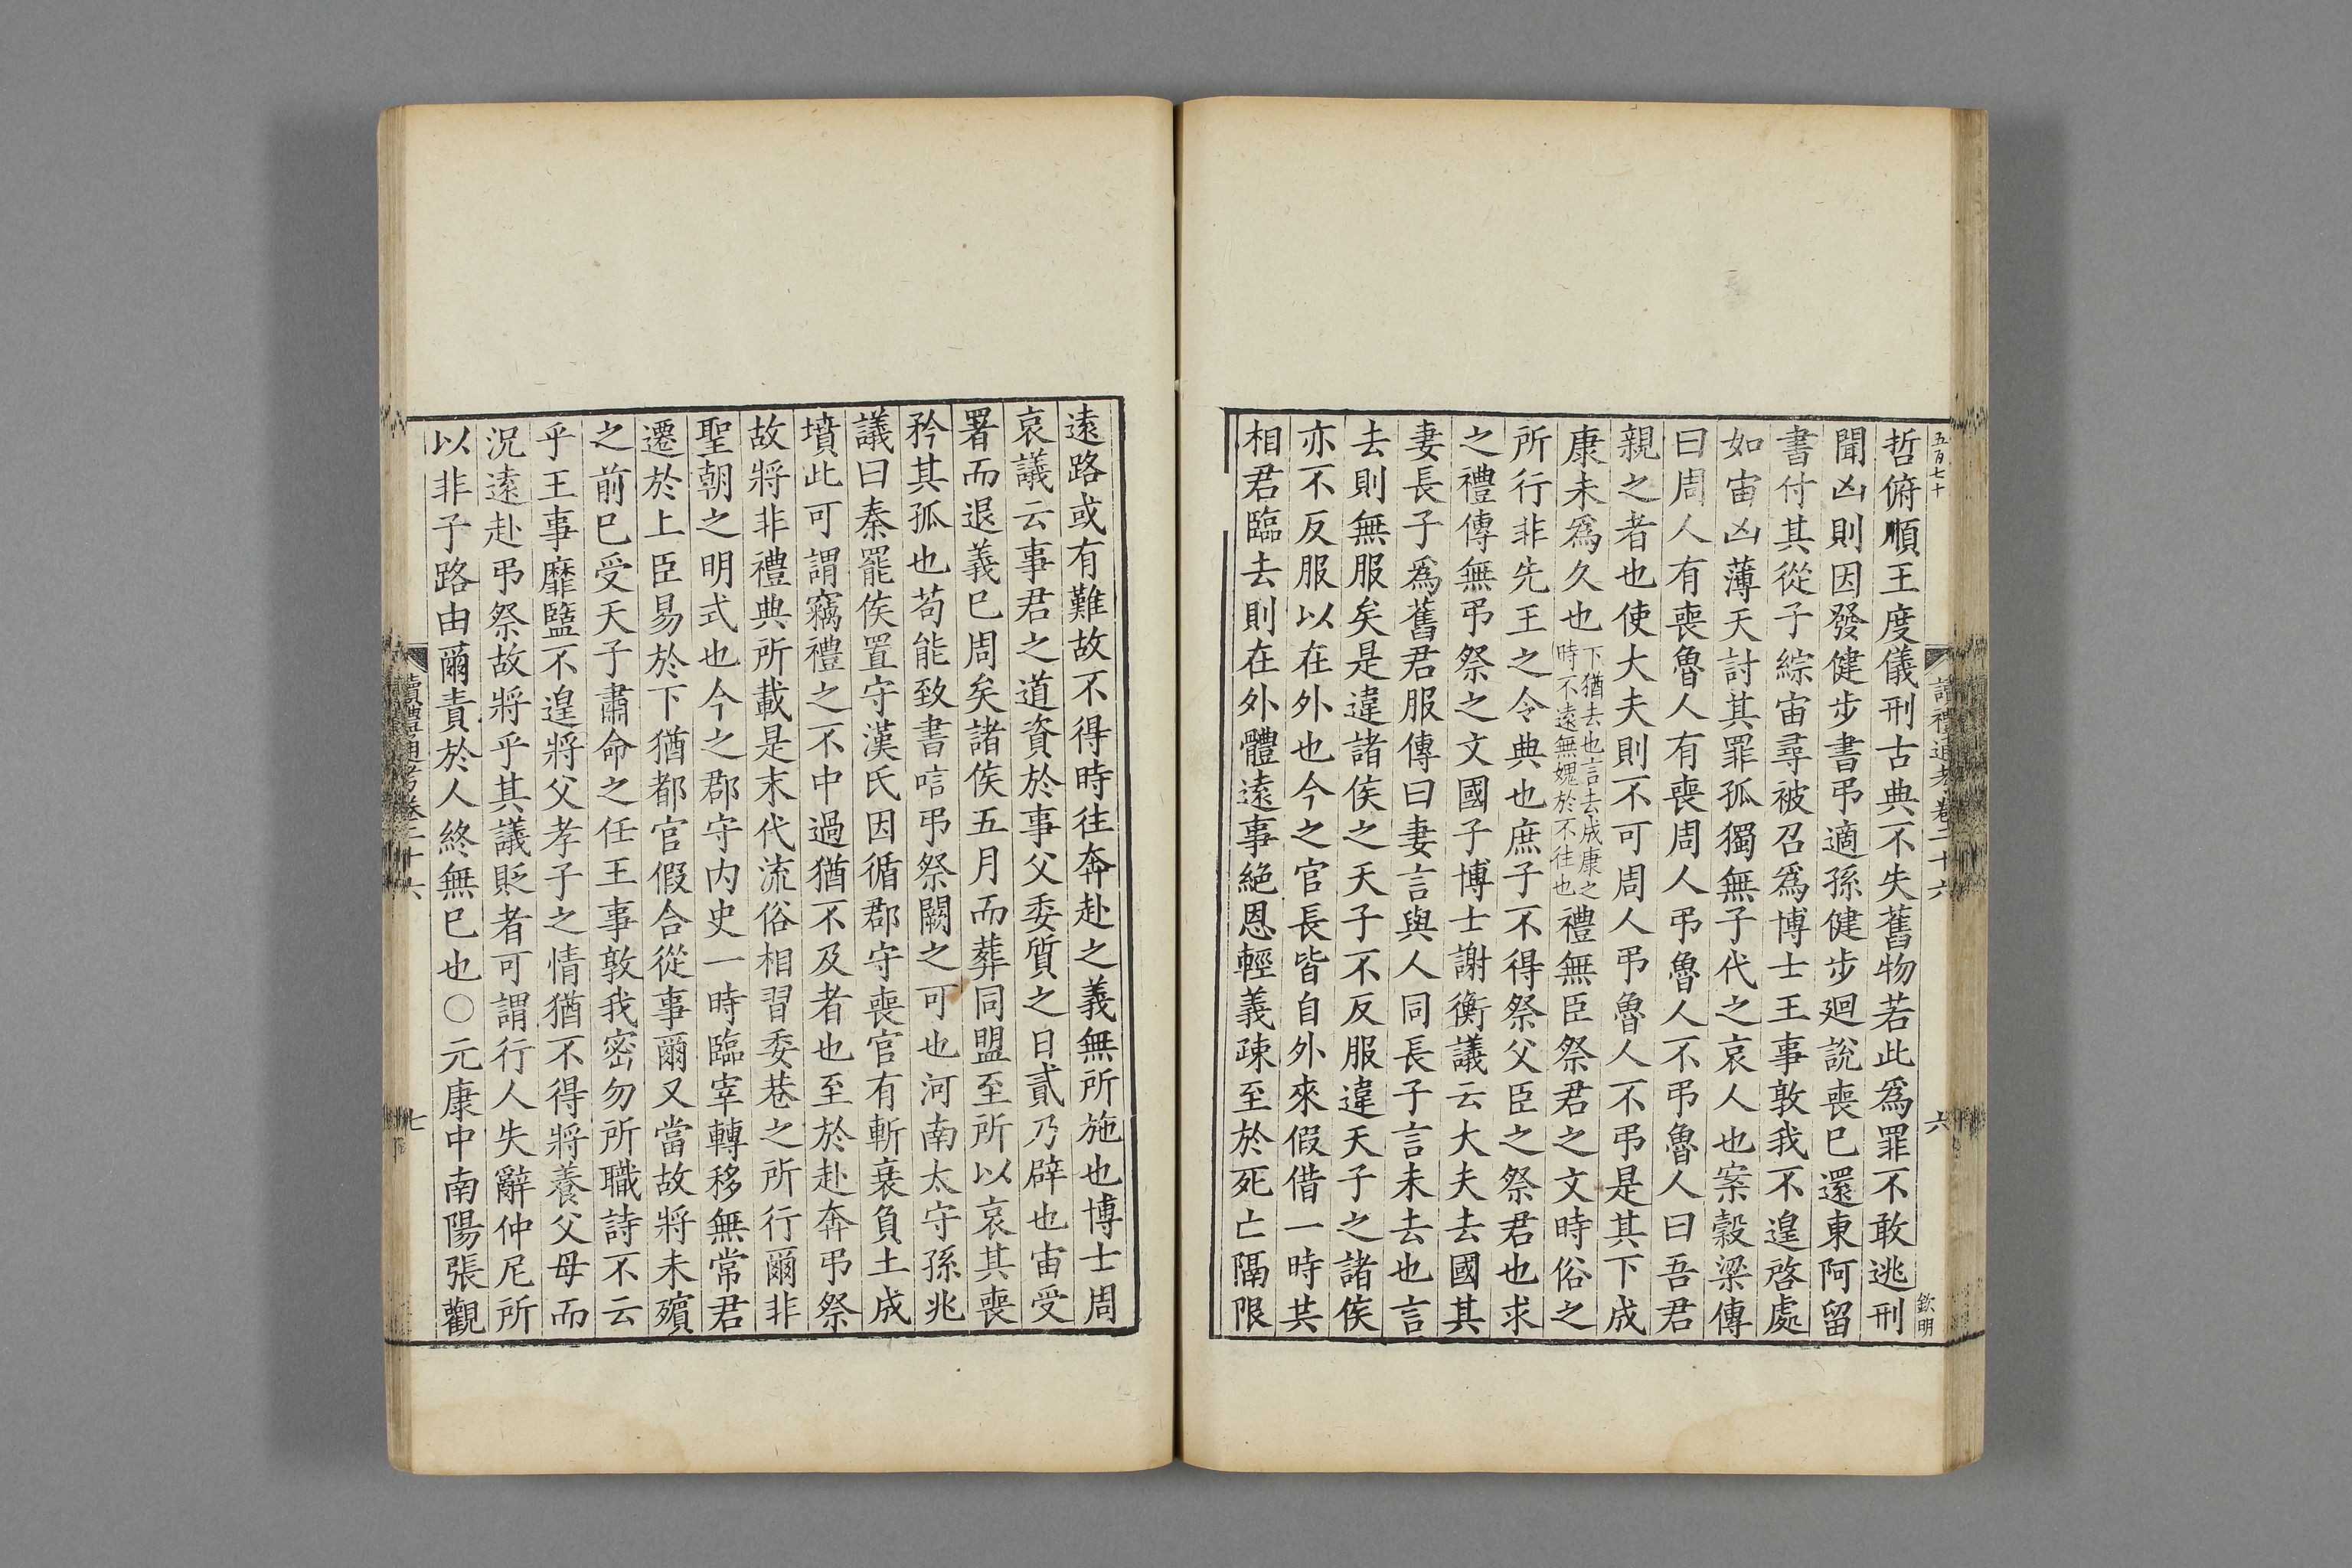 五百七十
哲俯順王度儀刑古典不失舊物若此爲罪不敢逃刑
聞凶則因發健步書弔適孫健步廻說喪已還東阿留
書付其從子綜宙尋被召爲博士王事敦我不遑啓處
如宙凶薄天討其罪孤獨無子代之哀人也案穀梁傳
曰周人有喪魯人有喪周人弔魯人不弔魯人曰吾君
親之者也使大夫則不可周人弔魯人不弔是其下成
康未爲久也下猶去也言去成康之時不遠無媿於不往也禮無臣祭君之文時俗之
所行非先王之令典也庶子不得祭父臣之祭君也求
之禮傳無弔祭之文國子博士謝衡議云大夫去國其
妻長子爲舊君服傳曰妻言與人同長子言未去也言
去則無服矣是違諸侯之天子不反服違天子之諸侯
亦不反服以在外也今之官長皆自外來假借一時共
相君臨去則在外體遠事絶恩輕義疎至於死亡隔限
讀禮通考卷二十六
六
欽明
遠路或有難故不得時往奔赴之義無所施也博士周
哀議云事君之道資於事父委質之日貳乃辟也宙受
署而退義已周矣諸侯五月而葬同盟至所以哀其喪
矜其孤也苟能致書唁弔祭闕之可也河南太守孫兆
議曰秦罷侯置守漢氏因循郡守喪官有斬衰負土成
墳此可謂竊禮之不中過猶不及者也至於赴奔弔祭
故將非禮典所載是末代流俗相習委巷之所行爾非
聖朝之明式也今之郡守内史一時臨宰轉移無常君
遷於上臣易於下猶都官假合從事爾又當故將未殯
之前已受天子肅命之任王事敦我密勿所職詩不云
乎王事靡盬不遑將父孝子之情猶不得將養父母而
況遠赴弔祭故將乎其議貶者可謂行人失辭仲尼所
以非子路由爾責於人終無已也○元康中南陽張觀
讀禮通考卷二十六
七